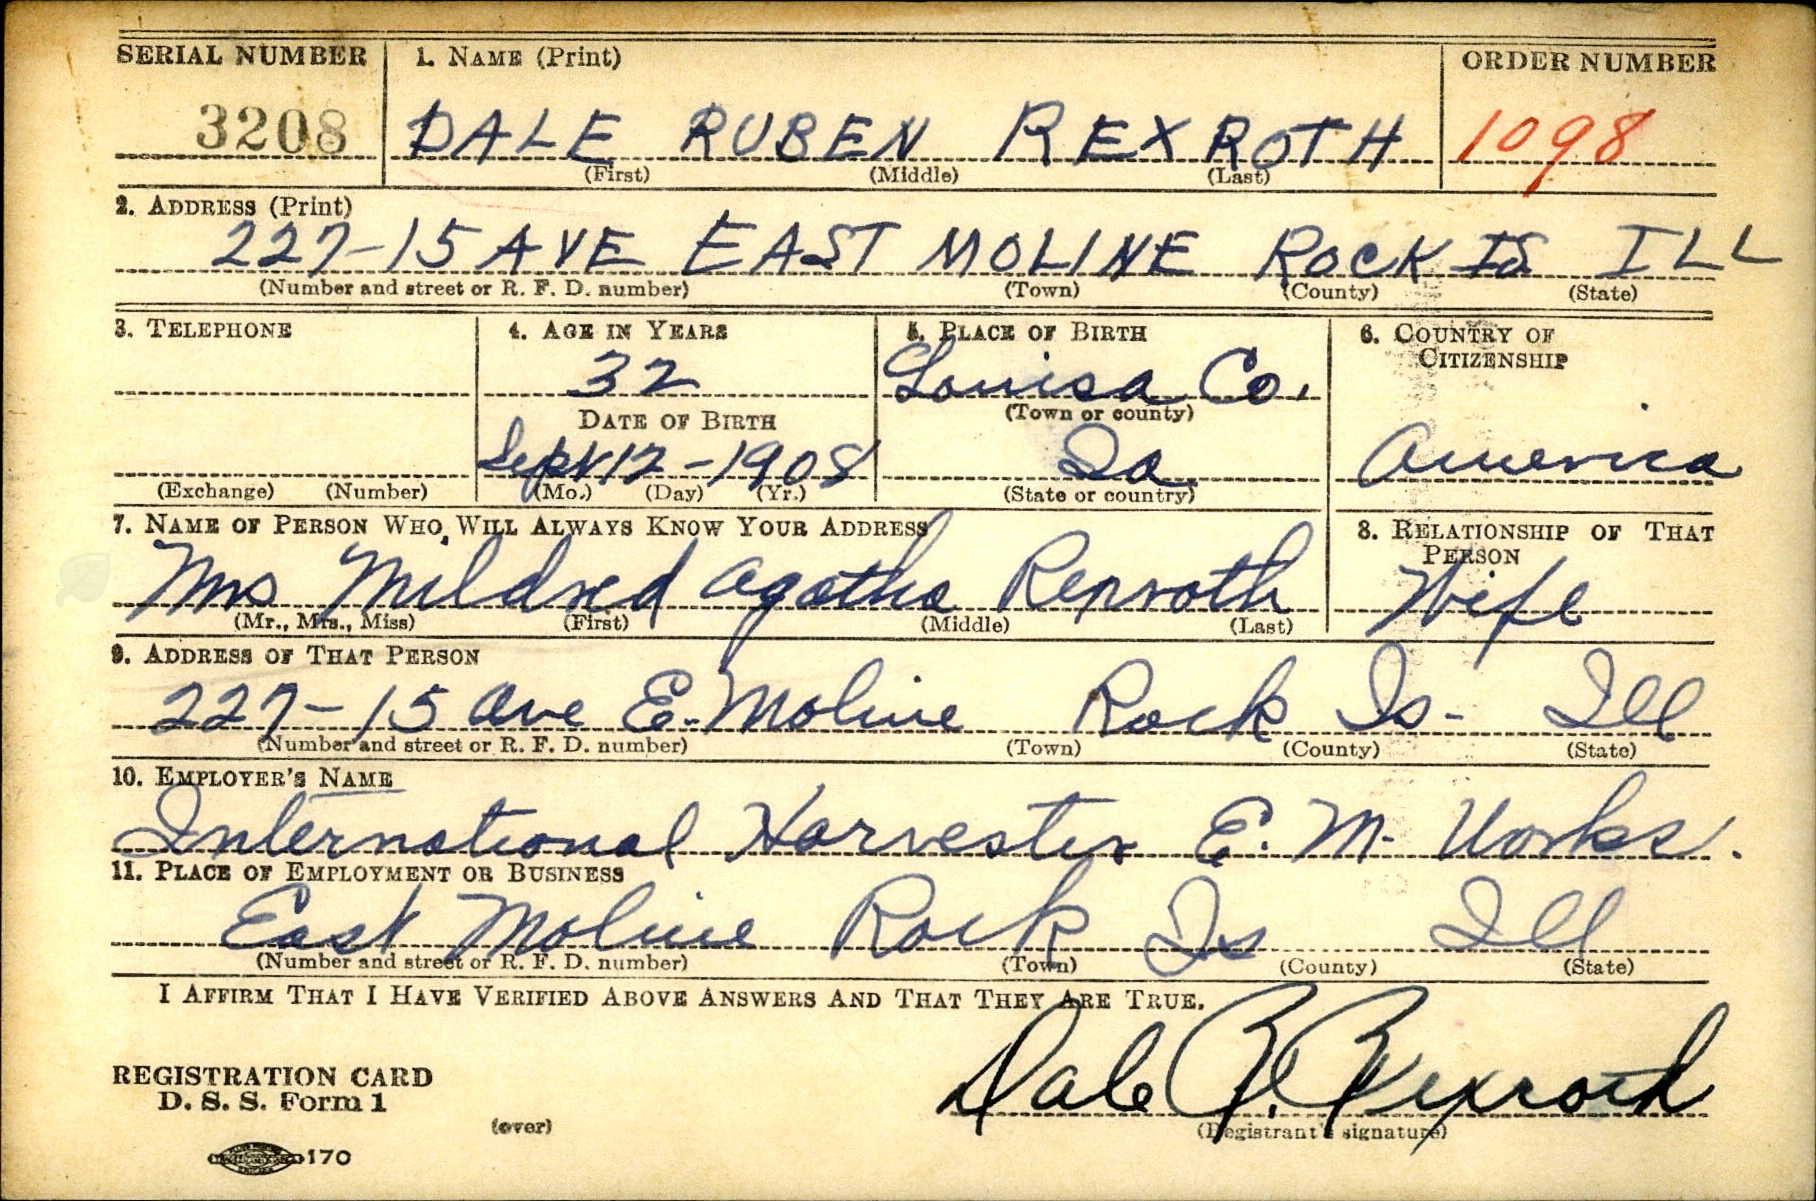 SERIAL NUMBER 1. NAME (Print) ORDER NUMBER
3208 DALE RUBEN REXROTH 1098
(First) (Middle) (Last)
2. ADDRESS (Print)
227-15 AVE EAST MOLINE ROCK IS ILL
(Number and street or R. F. D. number) (Town) (County) (State)
3. TELEPHONE 4. AGE IN YEARS 5. PLACE OF BIRTH 6. COUNTRY OF CITIZENSHIP
32 Louisa Co.
DATE OF BIRTH (Town or county)
Sept 12-1908 Ia America
(Exchange) (Number) (Mo.) (Day) (Yr.) (State or country)
7. NAME OF PERSON WHO WILL ALWAYS KNOW YOUR ADDRESS 8. RELATIONSHIP OF THAT PERSON
Mrs Mildred Agatha Rexroth Wife
(Mr., Mrs., Miss) (First) (Middle) (Last)
9. ADDRESS OF THAT PERSON
227-15 Ave E. Moline Rock Is- Ill
(Number and street or R. F. D. number) (Town) (County) (State)
10. EMPLOYER'S NAME
International Harvester E. M. Works.
11. PLACE OF EMPLOYMENT OR BUSINESS
East Moline Rock Is Ill
(Number and street or R. F. D. number) (Town) (County) (State)
I AFFIRM THAT I HAVE VERIFIED ABOVE ANSWERS AND THAT THEY ARE TRUE.
Dale R. Rexroth
(Registrant's signature)
REGISTRATION CARD
D. S. S. Form 1
(over)
170